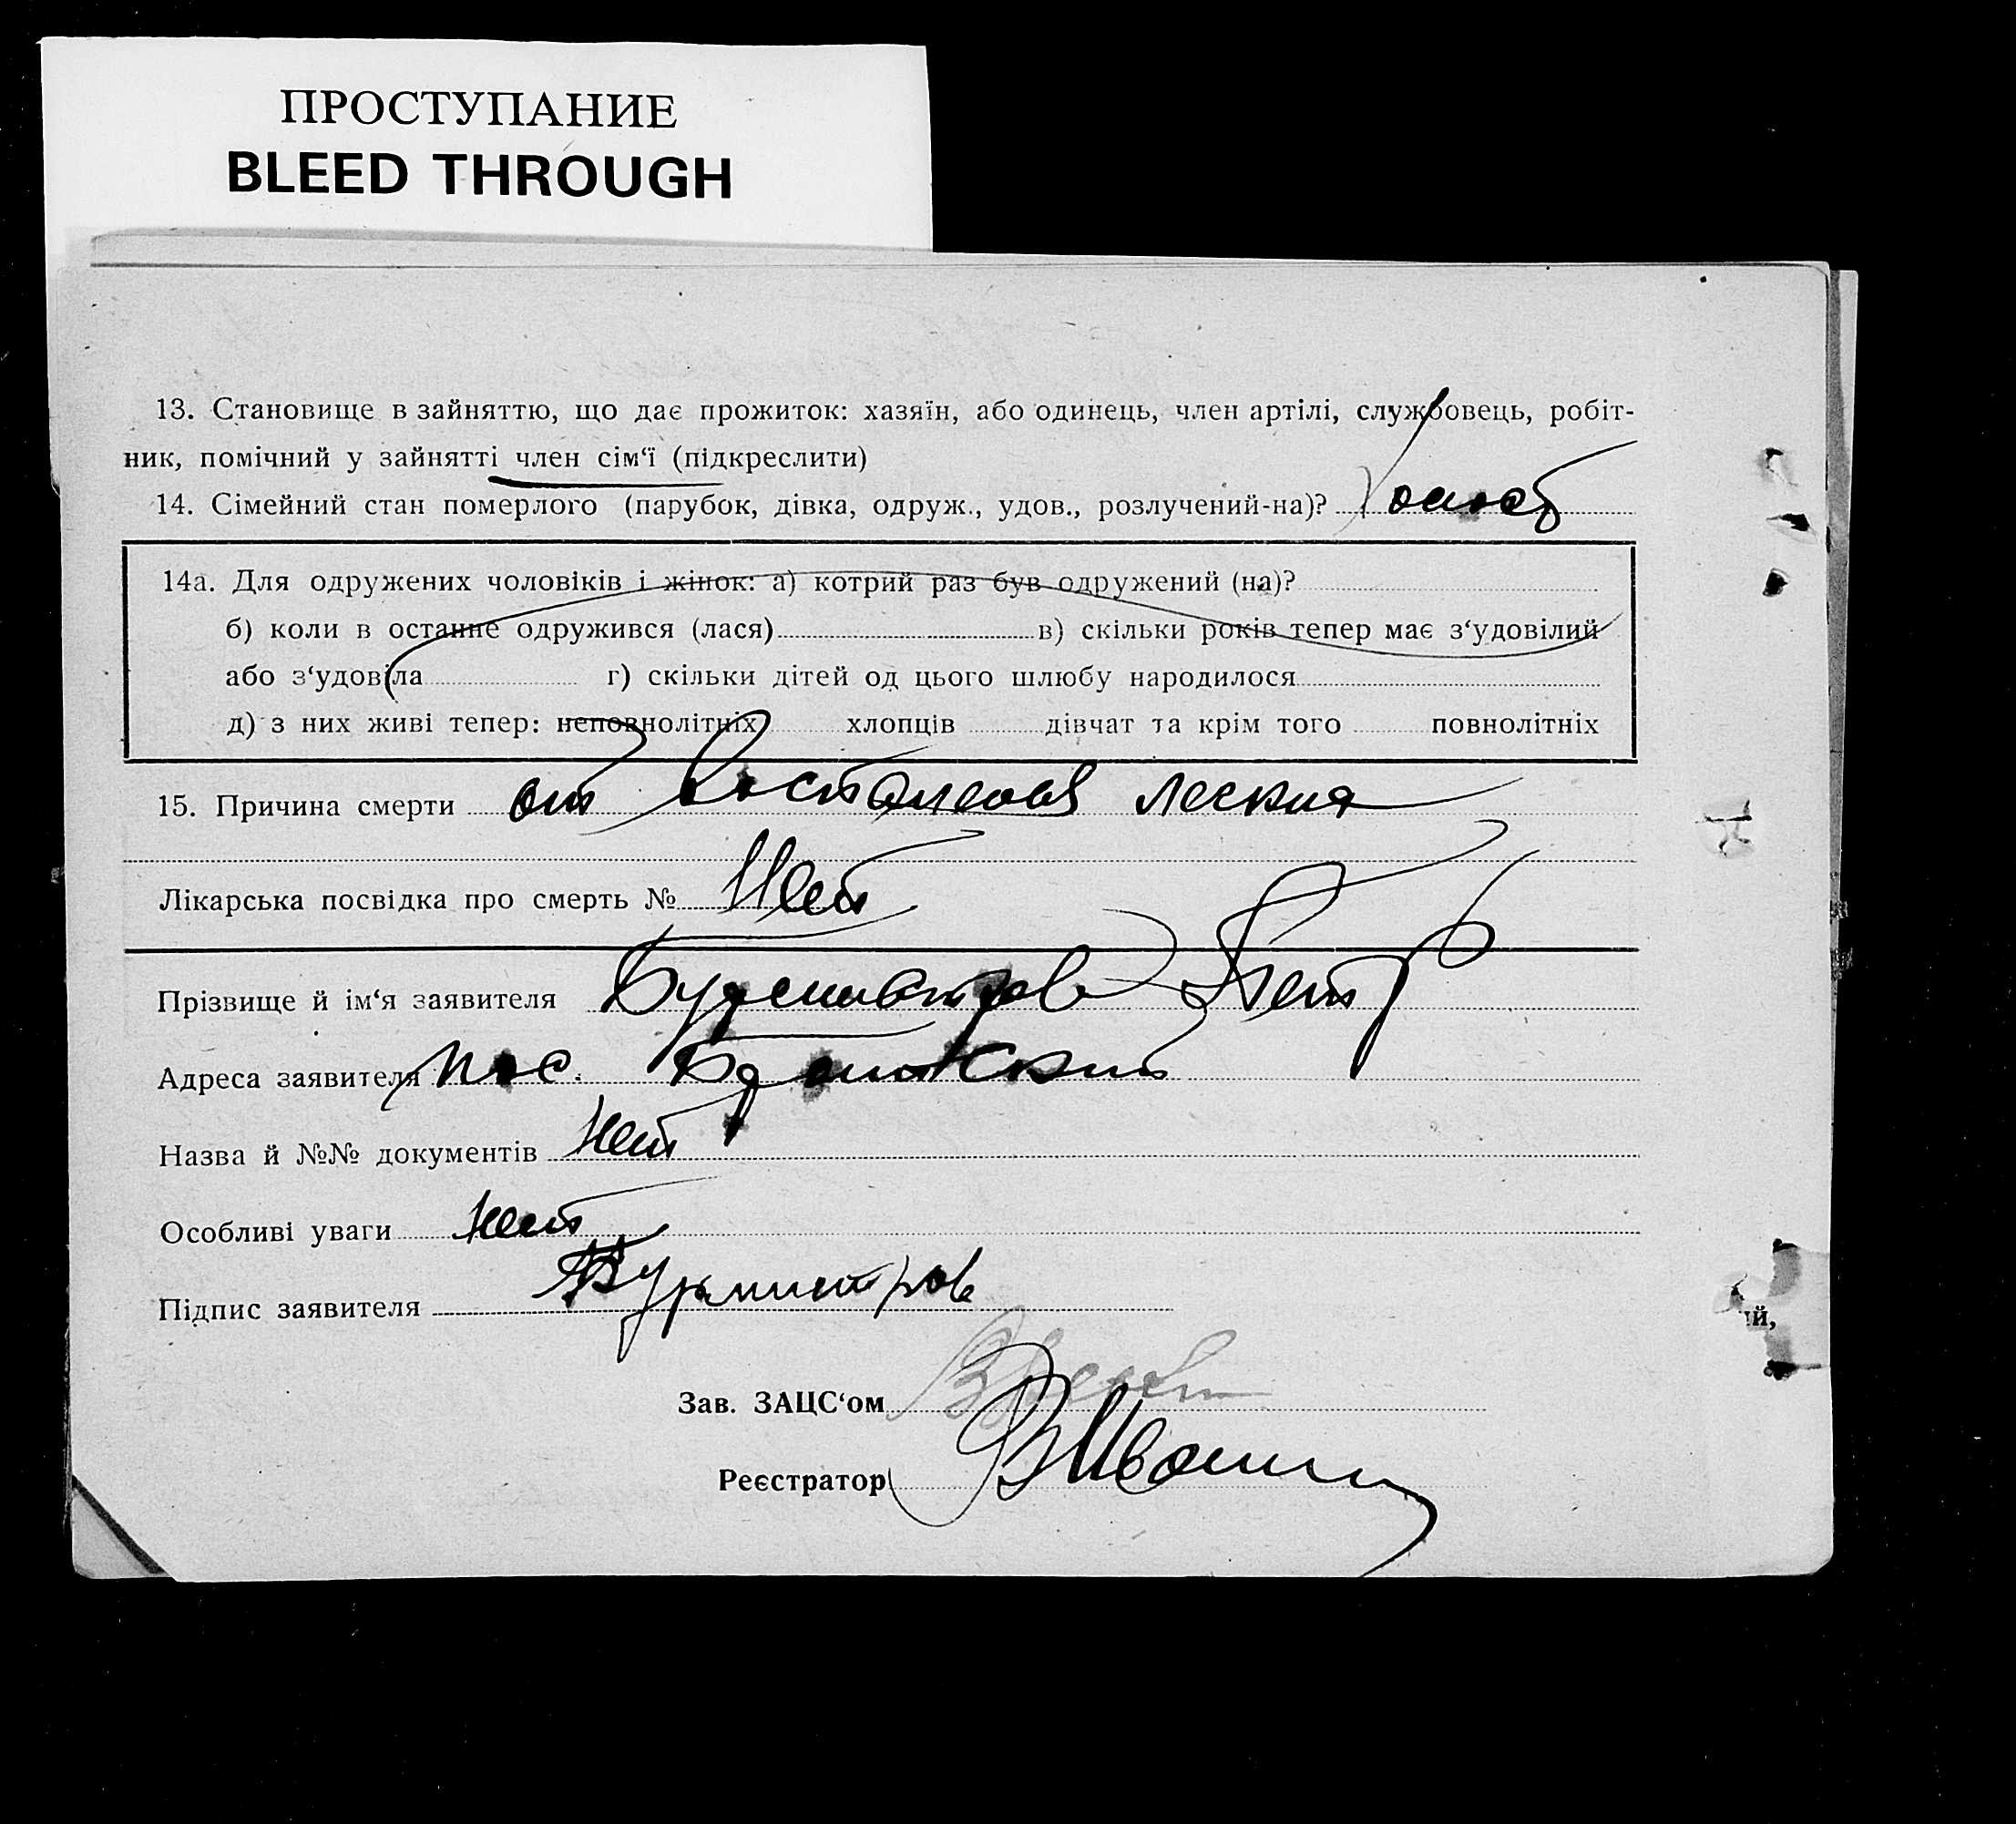 ПРОСТУПАНИЕ
BLEED THROUGH
13. Становище в зайняттю, що дає прожиток: хазяїн, або одинець, член артілі, службовець, робіт-
ник, помічний у зайнятті член сім‘ї (підкреслити)
14. Сімейний стан померлого (парубок, дівка, одруж., удов., розлучений-на)? Холост
14а. Для одружених чоловіків і жінок: а) котрий раз був одружений (на)?
б) коли в останне одружився (лася) в) скільки років тепер має з‘удовілий
або з‘удовіла г) скільки дітей од цього шлюбу народилося
д) з них живі тепер: неповнолітніх хлопців дівчат та крім того повнолітніх
15. Причина смерти от
Лікарська посвідка про смерть № Нет
Прізвище й ім‘я заявителя Бурмистров Петр
Адреса заявителя пос.
Назва й №№ документів Нет
Особливі уваги Нет
Підпис заявителя Бурмистров
Зав. ЗАЦС‘ом
Реєстратор
ий,